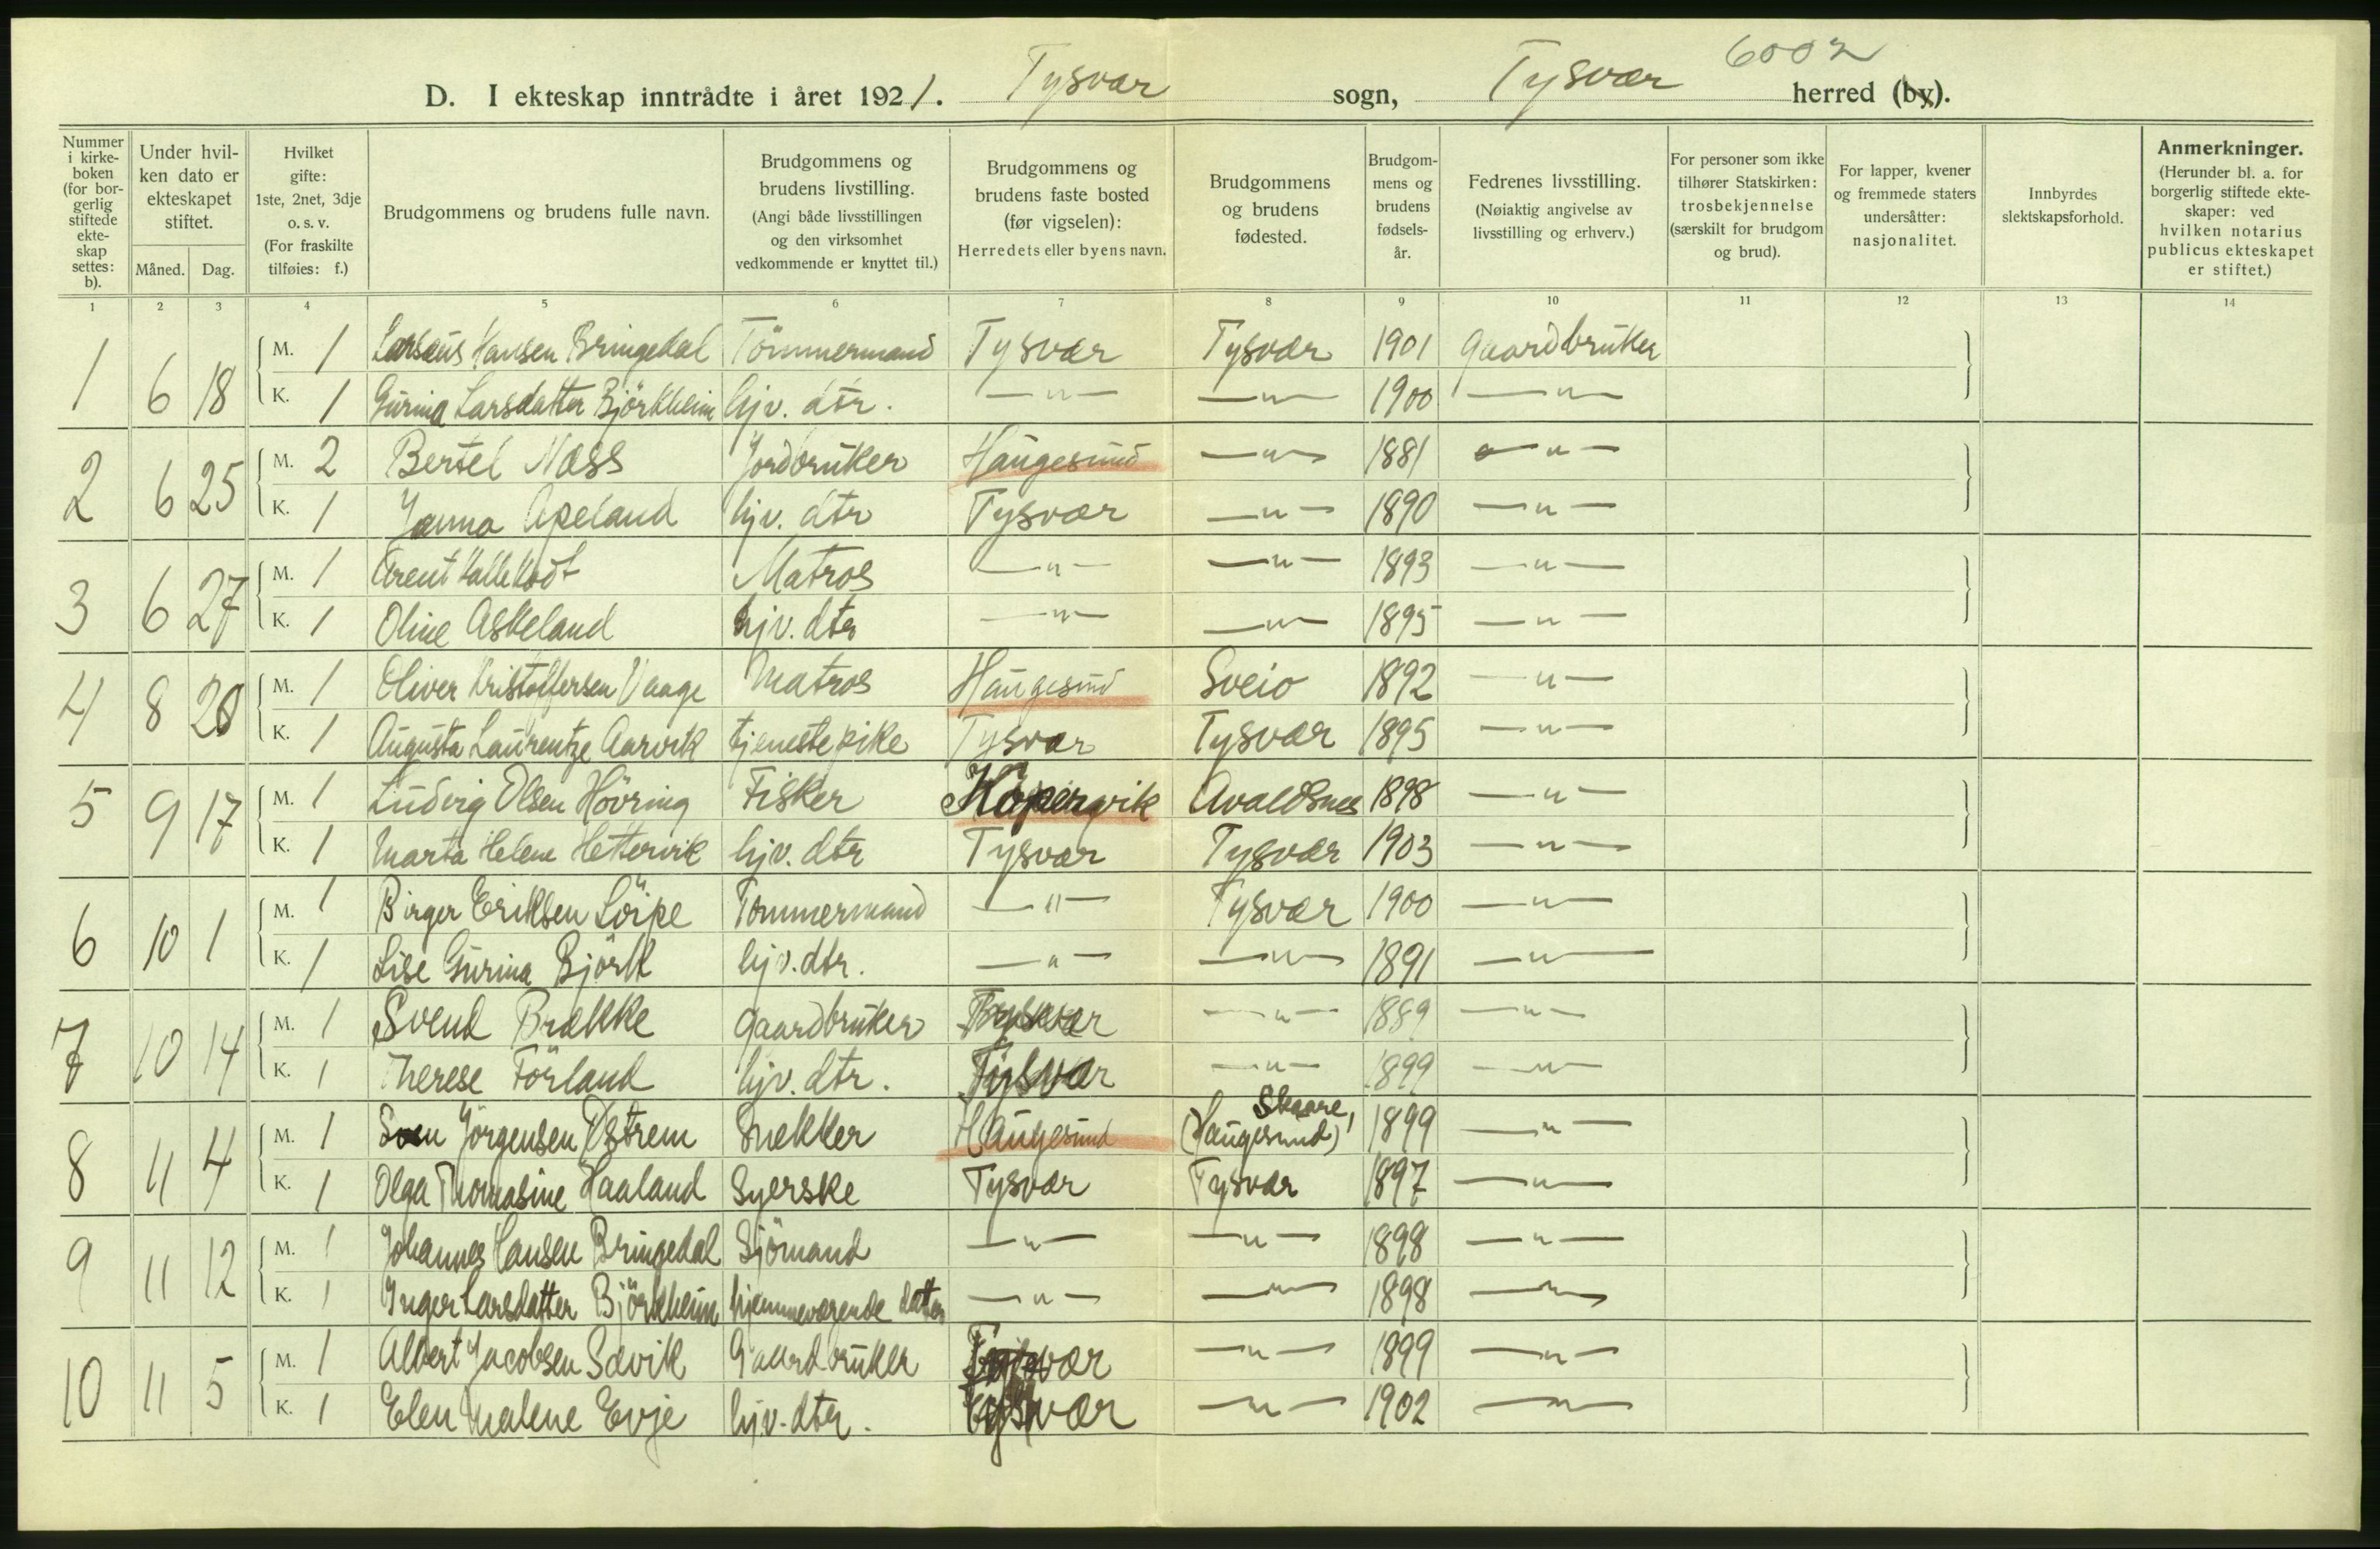 6002
D. I ekteskap inntrådte i året 1921. Tysvær sogn, Tysvær herred (by).
Nummer i kirke-boken (for bor-gerlig stiftede ekte-skap settes: b).
Under hvil-ken dato er ekteskapet stiftet.
Måned. Dag.
Hvilket gifte: 1ste, 2net, 3dje o. s. v. (For fraskilte tilføies: f.)
Brudgommens og brudens fulle navn.
Brudgommens og brudens livstilling. (Angi både livsstillingen og den virksomhet vedkommende er knyttet til.)
Brudgommens og brudens faste bosted (før vigselen): Herredets eller byens navn.
Brudgommens og brudens fødested.
Brudgom-mens og brudens fødsels-år.
Fedrenes livsstilling. (Nøiaktig angivelse av livsstilling og erhverv.)
For personer som ikke tilhører Statskirken: trosbekjennelse (særskilt for brudgom og brud).
For lapper, kvener og fremmede staters undersåtter: nasjonalitet.
Innbyrdes slektskapsforhold.
Anmerkninger. (Herunder bl. a. for borgerlig stiftede ekte-skaper: ved hvilken notarius publicus ekteskapet er stiftet.)
1 2 3 4 5 6 7 8 9 10 11 12 13 14
1 6 18 M. 1 Larsæus Hansen Bringedal Tömmermand Tysvær Tysvær 1901 Gaardbruker
K. 1 Gurina Larsdatter Björkheim hjv. dtr. —"— —"— 1900 —"—
2 6 25 M. 2 Bertel Næss Jordbruker Haugesund —"— 1881 —"—
K. 1 Janna Apeland hjv. dtr Tysvær —"— 1890 —"—
3 6 27 M. 1 Arent Hallekodt Matros —"— —"— 1893 —"—
K. 1 Oline Askeland hjv. dtr —"— —"— 1895 —"—
4 8 20 M. 1 Oliver Kristoffersen Vaage Matros Haugesund Sveio 1892 —"—
K. 1 Augusta Laurentze Aarvik tjenestepike Tysvær Tysvær 1895 —"—
5 9 17 M. 1 Ludvig Olsen Hövring Fisker Kopervik Avaldsnes 1898 —"—
K. 1 Marta Helene Hettervik hjv. dtr Tysvær Tysvær 1903 —"—
6 10 1 M. 1 Birger Eriksen Löipe Tømmermand —"— Tysvær 1900 —"—
K. 1 Lise Gurina Björk hjv. dtr. —"— —"— 1891 —"—
7 10 14 M. 1 Svend Brække Gaardbruker Tysvær —"— 1889 —"—
K. 1 Therese Förland hjv. dtr. Tysvær —"— 1899 —"—
8 11 4 M. 1 Sven Jörgensen Østrem Snekker Haugesund Skaare, (Haugesund) 1899 —"—
K. 1 Olga Thomasine Haaland Syerske Tysvær Tysvær 1897 —"—
9 11 12 M. 1 Johannes Hansen Bringedal Sjömand —"— —"— 1898 —"—
K. 1 Inger Larsdatter Björkheim hjemmeværende datter —"— —"— 1898 —"—
10 11 5 M. 1 Albert Jacobsen Sævik Gaardbruker Tysvær —"— 1899 —"—
K. 1 Elen Malene Evje hjv. dtr. Tysvær —"— 1902 —"—